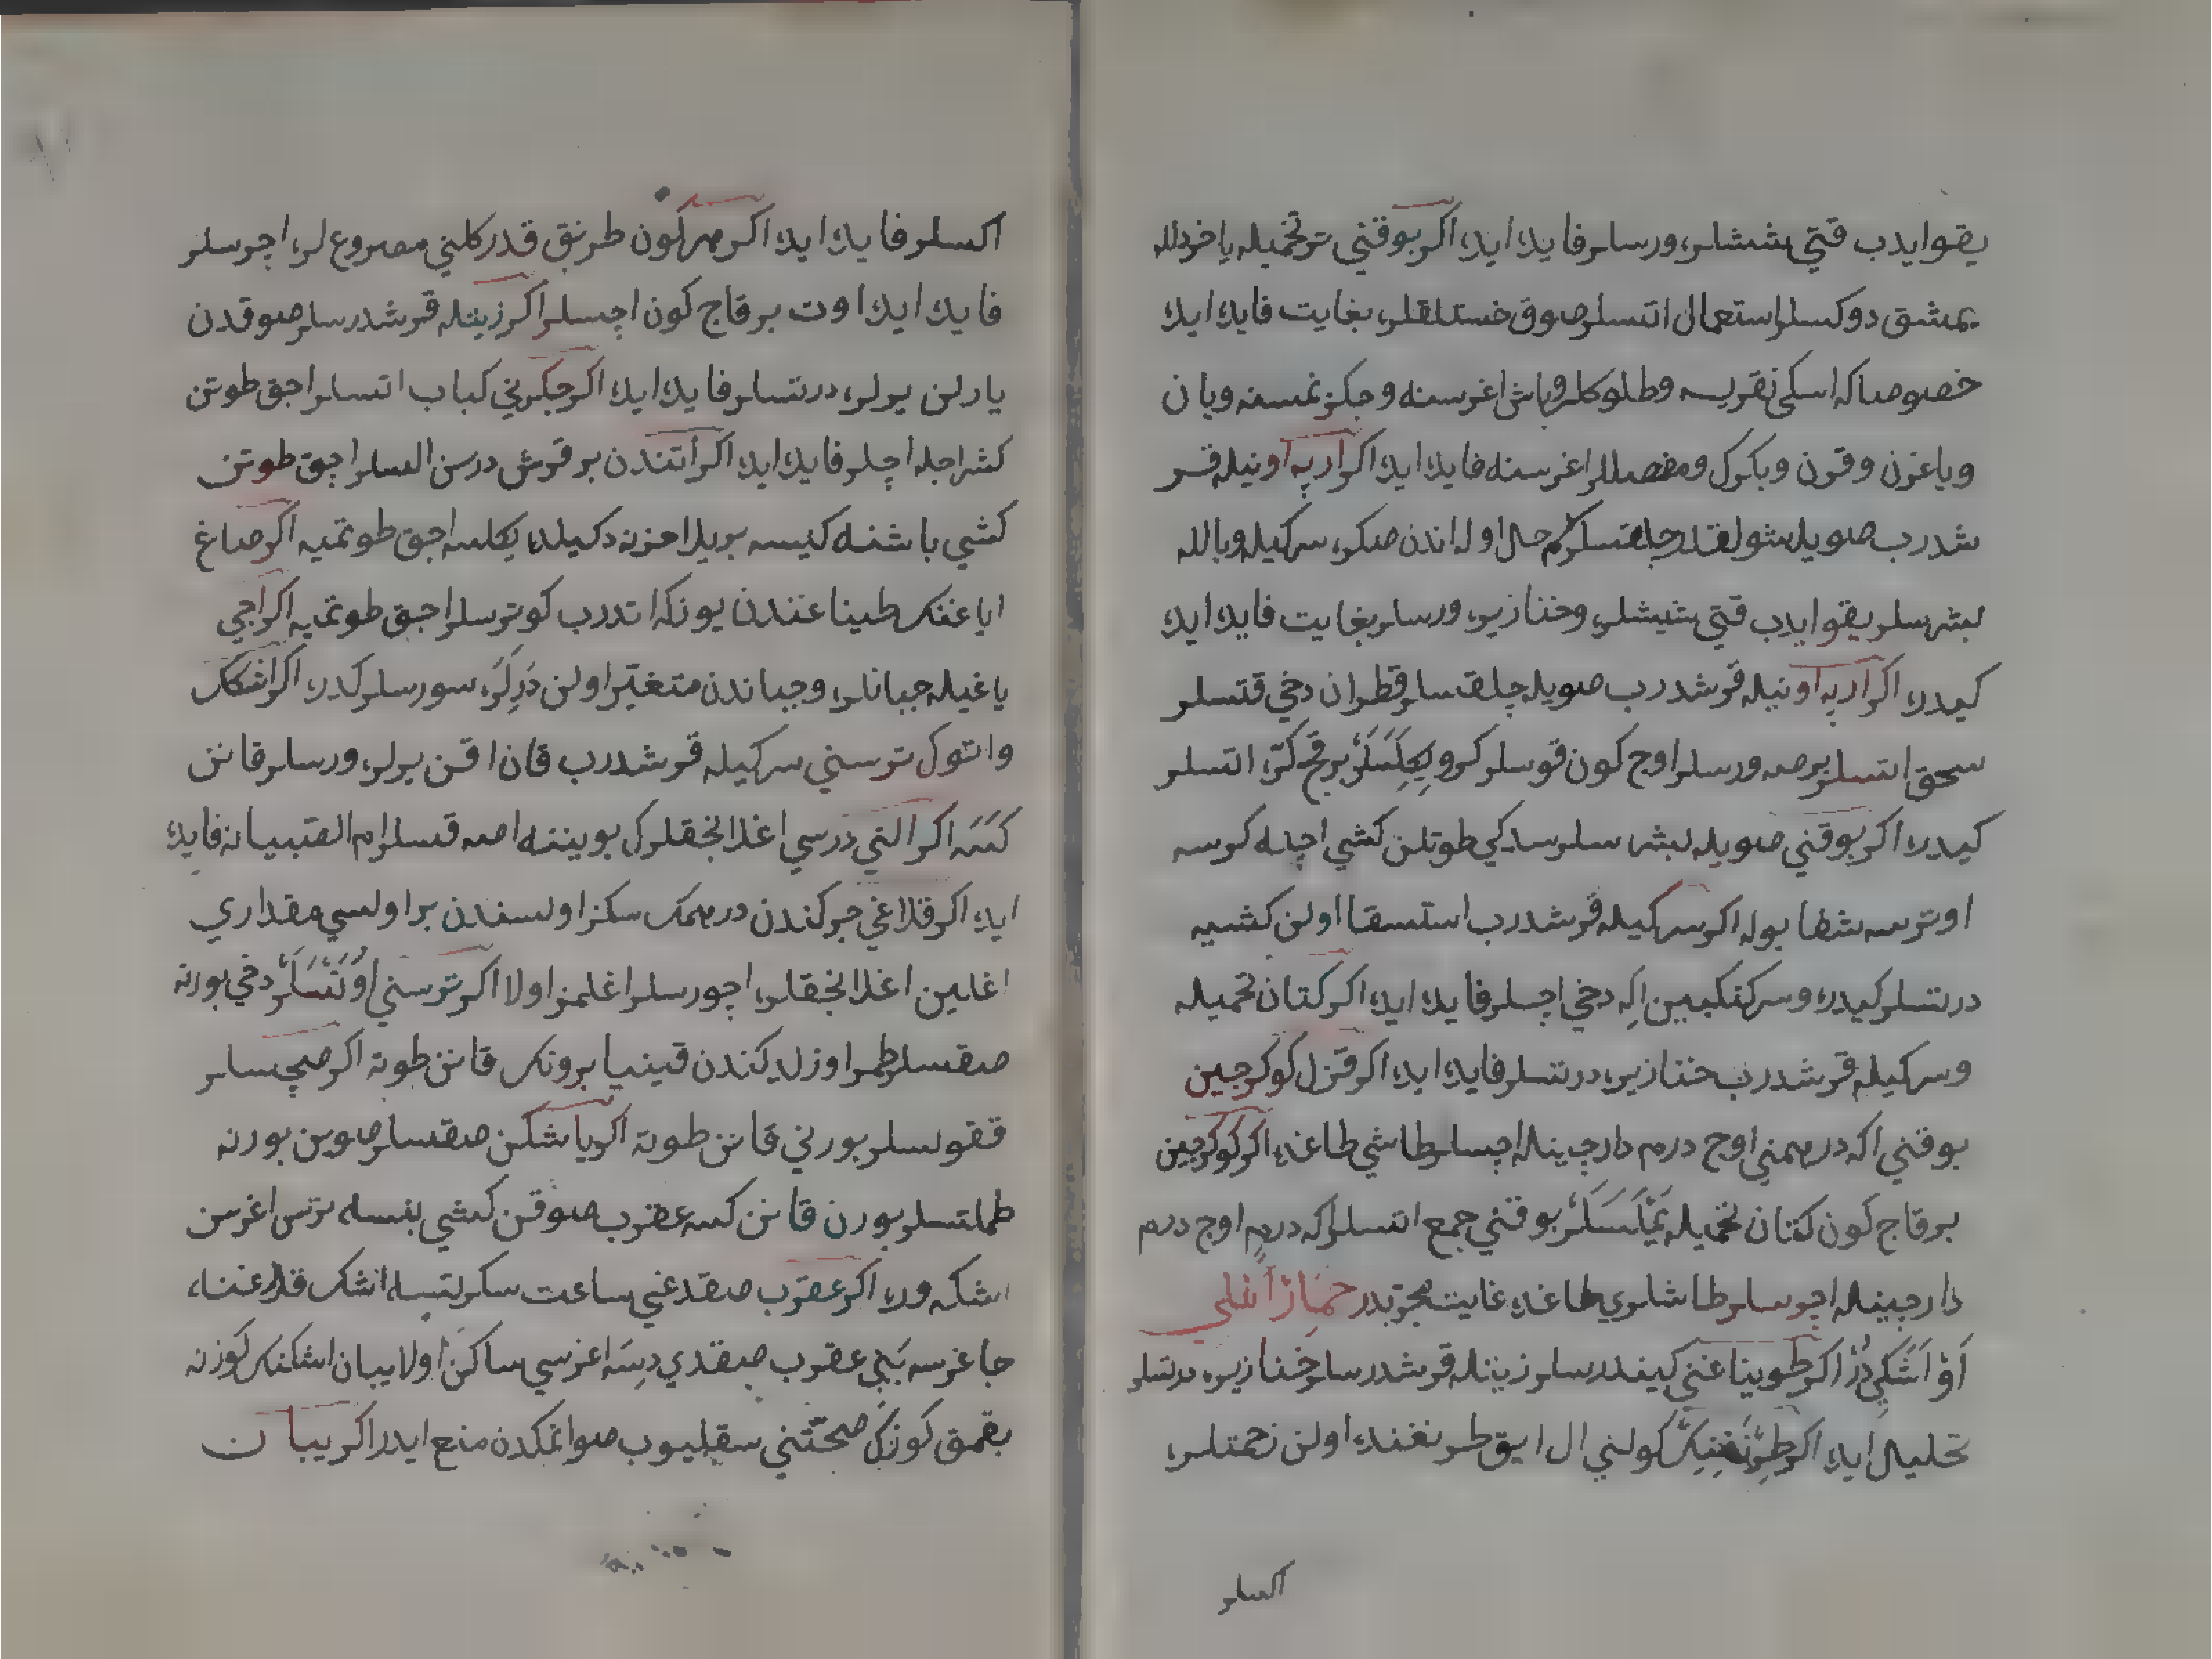 يقو ايدب قتي ششلره ورسلر فايده ايده اكر بوقني تر تخميله يا خردلله
يمشق دوكسلر استعمال اتسلر صوق خستلقلره بغايت فايده ايده
خصوصا كه اسكي نقريسه وطلوكلر وباش اغرسنه وجكزنمسنه ويان
وباغزن وقرن وبكرك ومفصللر اغرسنه فايده ايده اكر اربه اونيله قر
شدرب صويله شولقدر چلقسلر كم حل اوله اندن صكره سركيله وبالله
بشرسلر يقو ايدب قتي شيشلره وخنازيره ورسلر بغايت فايده ايده
كيدره اكر اربه اونيله قرشدرب صويله چلقسلر قطران دخي قتسلر
سحق اتسلر برصه ورسلر اوج كون قوسلر كرو يكلسلر برقچ كره اتسلر
كيدره اكر بوقني صويله بشرسلر سدكي طوتلن كشي اچنه كرسه
اوترسه شفا بوله اكر سركيله قرشدرب استسقا اولن كشيه
درتسلر كيدره وسركنكبين اله دخي اچسلر فايده ايده اكر كتان تخميله
وسركيله قرشدرب خنازيره درتسلر فايده ايده اكر قزل كوكرجين
بوقني اكه درهمني اوج درم دارچينله اچسلر طاشي طاغده اكر كوكرجين
برقاج كون كتان تخميله يمكسلر بوقني جمع اتسلر اكه درهم اوج درم
دارچينله اچورسلر طاشلري طاغده غايت مجربدر حمار اهلي
او اشكيدر اكر طوينا غني كيندرسلر زيتله قرشدرسلر خنازيره درتسلر
تحليل ايده اكر طرنغنك كولني ال ايق طرنغنده اولن زحمتلره
اكسلر
اكسلر فايده ايده اكر هركون طرنق قدر كلني مصروع لره اچرسلر
فايده ايده اوت برقاج كون اچسلر اكر زيتله قرشدرسلر صوقدن
يارلن يرلره درتسلر فايده ايده اكر جكرني كباب اتسلر اجق طوتن
كشر اجله اچلر فايده ايده اكر اتندن بر قرش درسن السلر اجق طوتن
كشي باشنه كيسه بريلا حزنه دكيله يكلسه اجق طوتميه اكر صاغ
اياغنك طيناغندن يوزكه اتدرب كوترسلر اجق طوتميه اكر اجي
ياغيله جبانلره وجباندن متغير اولن درلره سورسلر كدره اكر اشكك
واتوك ترسني سركيله قرشدرب قان اقن يرلره ورسلر قانن
كسه اكر الني درسي اغلانجقلرك بويننه اصه قسلر ام الصبيانه فايده
ايده اكر قلاغي جركندن درهمك سكز اولسندن بر اولسي مقداري
اغلين اغلانجقلره اچورسلر اغلمز اولا اكر ترسني اونتسلر دخي بورنه
صقسلر طمر اوزلديكندن قينيا برونك قانن طوته اكر صچسلر
ققولسلر بورني قانن طوته اكر ياشكن صقسلر صوين بورنه
طملتسلر بورن قانن كسه عقرب صوقن كشي بنسه ترس اغرسن
اشكه وره اكر عقرب صقدغي ساعت سكرتسه اشك قلاغنا
جاغرسه بني عقرب صقدي دسه اغرسي ساكن اولا يبان اشكنك كوزنه
بقمق كوزك صحتني سقليوب صو انمكدن منع ايدر اكر يبان